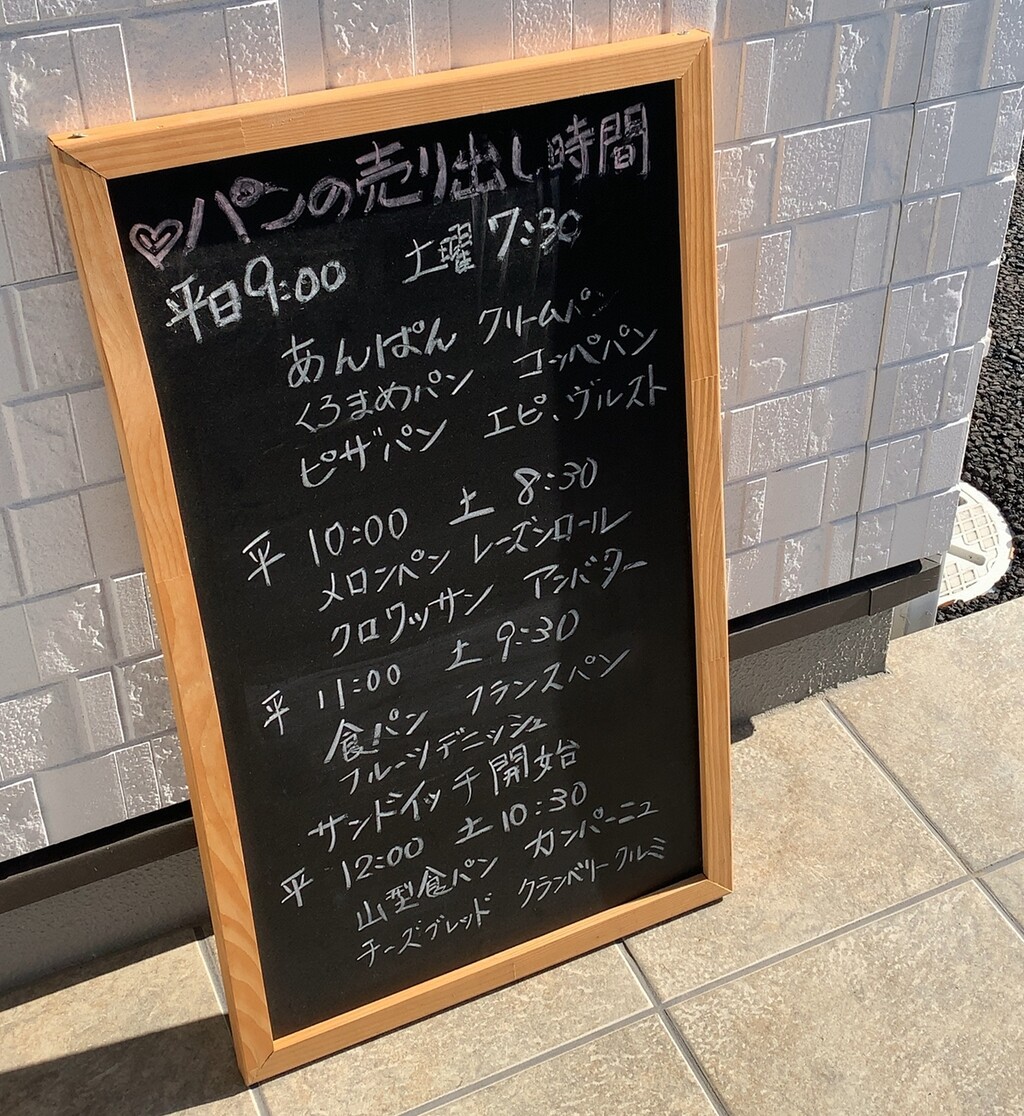 ♡パンの売り出し時間
平日9:00 土曜7:30
あんぱん クリームパン
くろまめパン コッペパン
ピザパン エピ、ヴルスト
平 10:00 土 8:30
メロンペン レーズンロール
クロワッサン アンバター
平 11:00 土 9:30
食パン フランスパン
フルーツデニッシュ
サンドイッチ開始
平 12:00 土10:30
山型食パン カンパーニュ
チーズブレッド クランベリークルミ